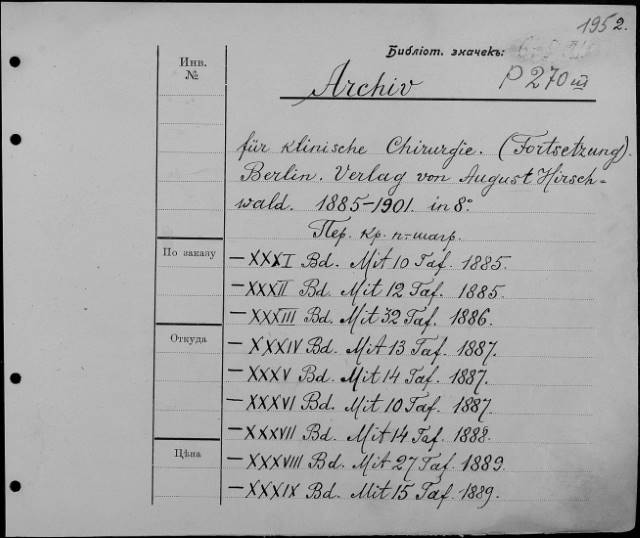 1952.
Библіот. значекъ:
Инв.
№
Archiv P 270 III
für klinische Chirurgie. (Fortsetzung).
Berlin. Verlag von August Hirsch-
wald. 1885-1901. in 8°.
Пер. кр. п-шагр.
По заказу
— XXXI Bd. Mit 10 Taf. 1885.
— XXXII Bd. Mit 12 Taf. 1885.
— XXXIII Bd. Mit 32 Taf. 1886.
Откуда
— XXXIV Bd. Mit 13 Taf. 1887.
— XXXV Bd. Mit 14 Taf. 1887.
— XXXVI Bd. Mit 10 Taf. 1887.
— XXXVII Bd. Mit 14 Taf. 1888.
Цѣна
— XXXVIII Bd. Mit 27 Taf. 1889.
— XXXIX Bd. Mit 15 Taf. 1889.